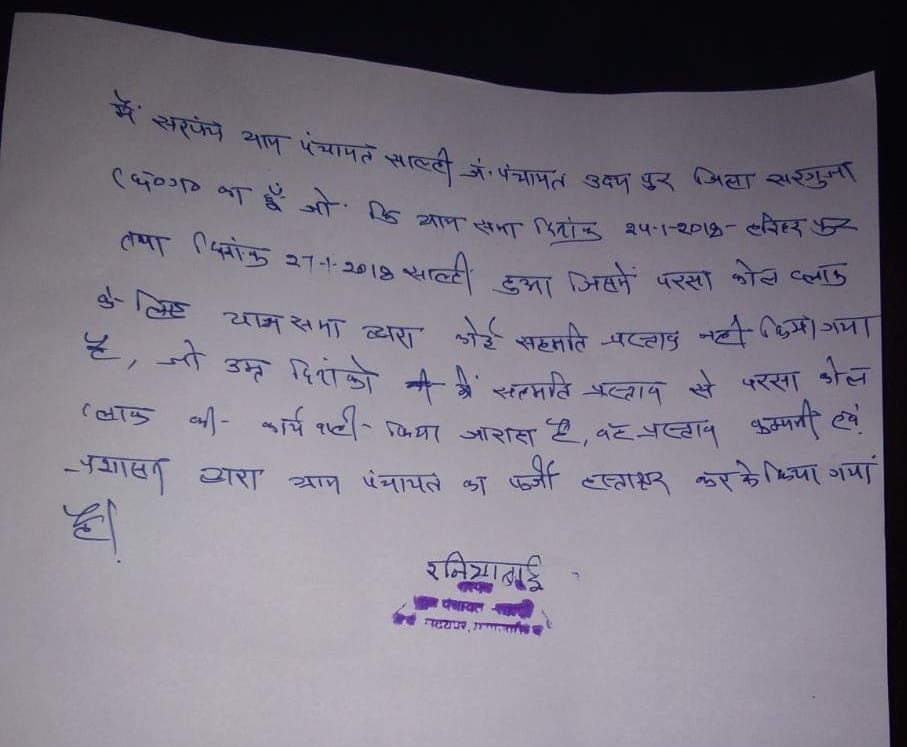 में सरपंच ग्राम पंचायत साल्ही जं. पंचायत उदय पुर जिला सरगुजा
(छ०ग० का हूँ जो कि ग्राम सभा दिनांक 24-1-2018- हरिहर पुर
तथा दिनांक 27-1-2018 साल्ही हुआ जिसमें परसा कोल ब्लाक
के लिए ग्राम सभा द्वारा कोई सहमति प्रस्ताव नही किया गया
है, जो उक्त दिनांको में सहमति प्रस्ताव से परसा कोल
ब्लाक की- कार्य वाही- किया जारहा है, वह प्रस्ताव कम्पनी एवं
प्रशासन द्वारा ग्राम पंचायत का फर्जी हस्ताक्षर कर के किया गया
है।
रनियाबाई
सरपंच
ग्राम पंचायत